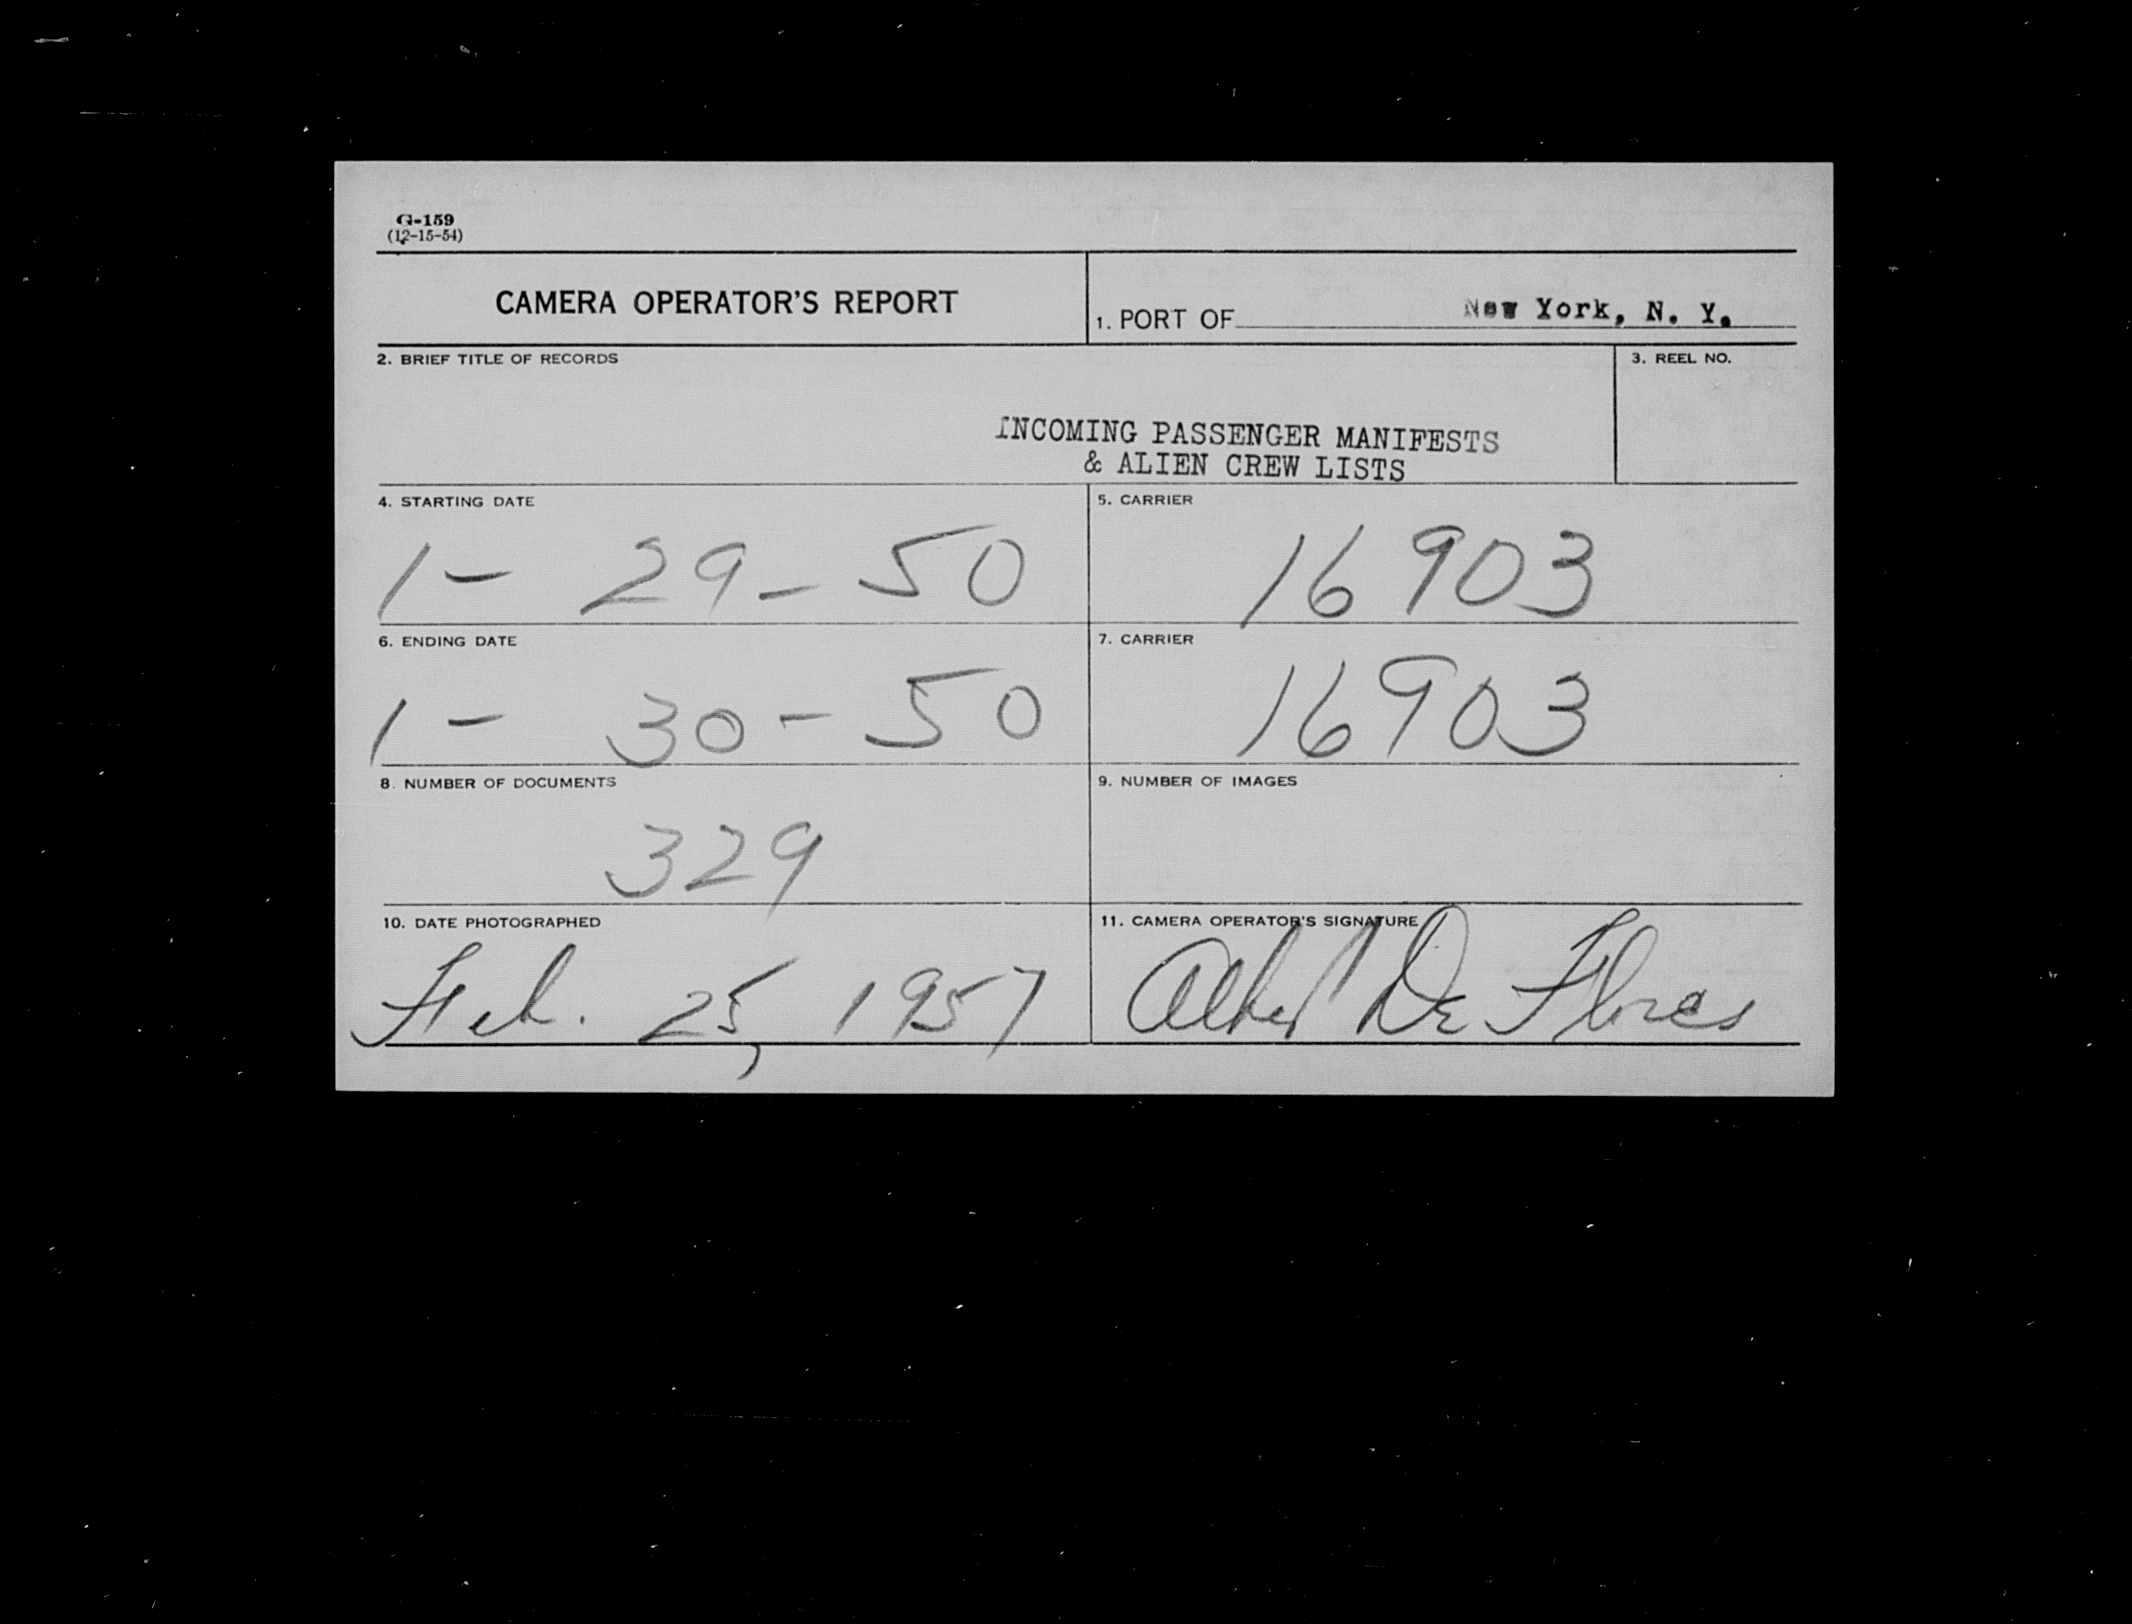 G-159
(12-15-54)
CAMERA OPERATOR'S REPORT
1. PORT OF New York, N. Y.
2. BRIEF TITLE OF RECORDS
3. REEL NO.
INCOMING PASSENGER MANIFESTS
& ALIEN CREW LISTS
4. STARTING DATE
5. CARRIER
1- 29-50
16903
6. ENDING DATE
7. CARRIER
1- 30-50
16903
8. NUMBER OF DOCUMENTS
9. NUMBER OF IMAGES
329
10. DATE PHOTOGRAPHED
11. CAMERA OPERATOR'S SIGNATURE
Feb. 25, 1957
Albert De Flores